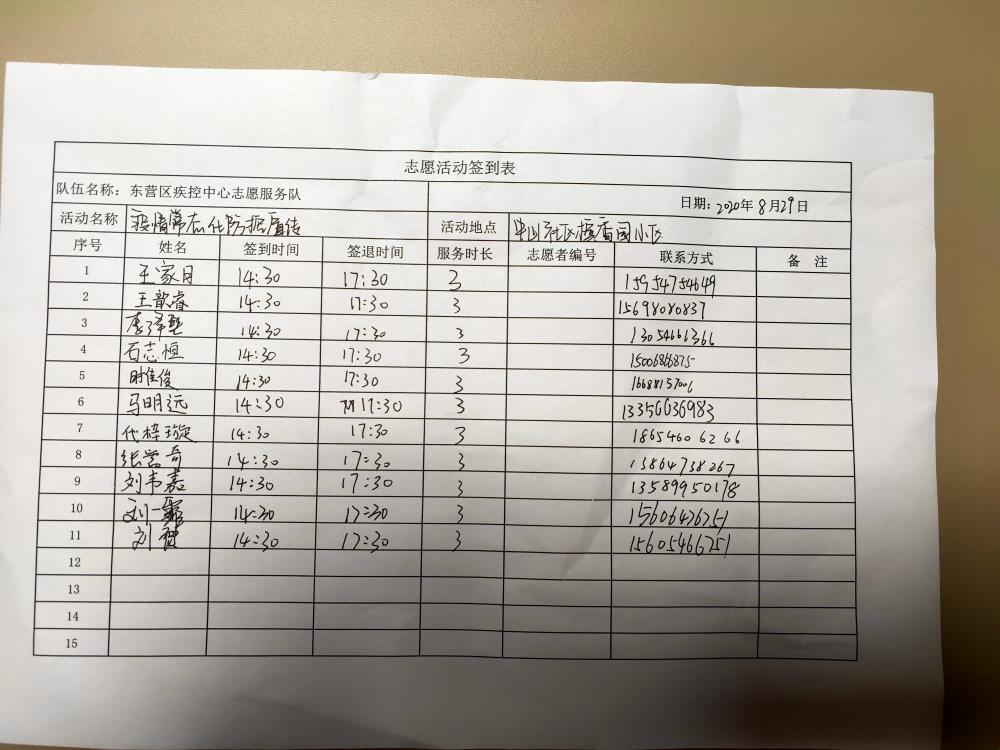 志愿活动签到表
队伍名称：东营区疾控中心志愿服务队 日期：2020年8月29日
活动名称 疫情常态化防控宣传 活动地点 社区 香园小区
序号 姓名 签到时间 签退时间 服务时长 志愿者编号 联系方式 备 注
1 王家月 14:30 17:30 3 15954754649
2 王歆睿 14:30 17:30 3 15698080837
3 李泽 14:30 17:30 3 13054661366
4 石志恒 14:30 17:30 3
5 俊 14:30 17:30 3
6 马明远 14:30 17:30 3 13356636983
7 代梓璇 14:30 17:30 3 18654606266
8 张 奇 14:30 17:30 3 13864738267
9 刘韦嘉 14:30 17:30 3 13589950178
10 刘一 14:30 17:30 3
11 刘 14:30 17:30 3 15605466751
12
13
14
15